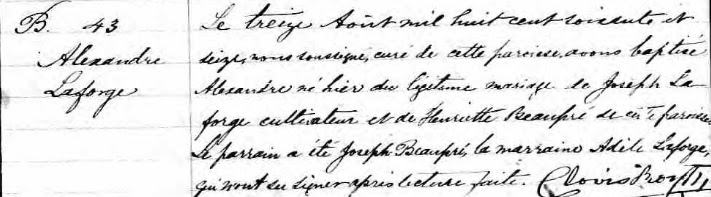 B. 43
Alexandre
Laforge
Le treize Août mil huit cent soixante et
seize, nous soussigné, curé de cette paroisse, avons baptisé
Alexandre né hier du légitime mariage de Joseph La-
forge cultivateur et de Henriette Beaupré de cette paroisse.
Le parrain a été Joseph Beaupré, la marraine Adèle Laforge,
qui n'ont su signer après lecture faite. Clovis